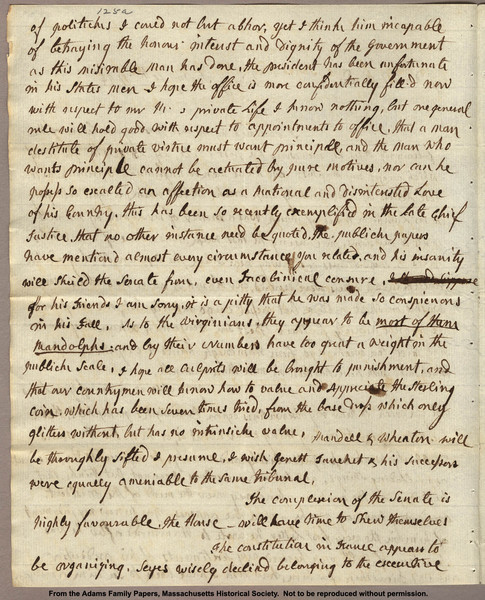 125a
of politicks I could not but abhor, yet I think him incapable
of betraying the honour interest and dignity of the Government
as this misirable man has done, the president has been unfortunate
in his States men I hope the office is more confidentially fill'd now
with respect to mr H s private Life I know nothing, but one general
rule will hold good with respect to appointments to office, that a man
destitute of private virtue must want principall, and the man who
wants principle cannot be actuated by pure motives, nor can he
possess so exalted an affection as a National and disintrested Love
of his Country. this has been so recently exemplified in the Late Chief
Justice, that no other instance need be quoted. the publick papers
have mention'd almost every circumstance you related, and his insanity
will sheild the Senate from, even Jacobinical censure,
for his Friends I am sorry, it is a pitty that he was made so conspicuous
in his Fall, As to the virginians, they appear to be most of them
Randolphs, and by their Numbers have too great a weight in the
publick scale, I hope all culprits will be brought to punishment, and
that our countrymen will know how to value and appreciate the sterling
coin, which has been seven times tried, from the base dross which only
glitters without, but has no intrinsick value, Randell & Wheaton will
be thoroughly sifted I presume, I wish Genett Fauchet & his successors
were equally ameniable to the same tribunal,
the complexion of the Senate is
highly favourable, the House will have time to shew themselves
the constitution in France appears to
be organizing. Seyes wisely declined belonging to the executive
From the Adams Family Papers, Massachusetts Historical Society. Not to be reproduced without permission.